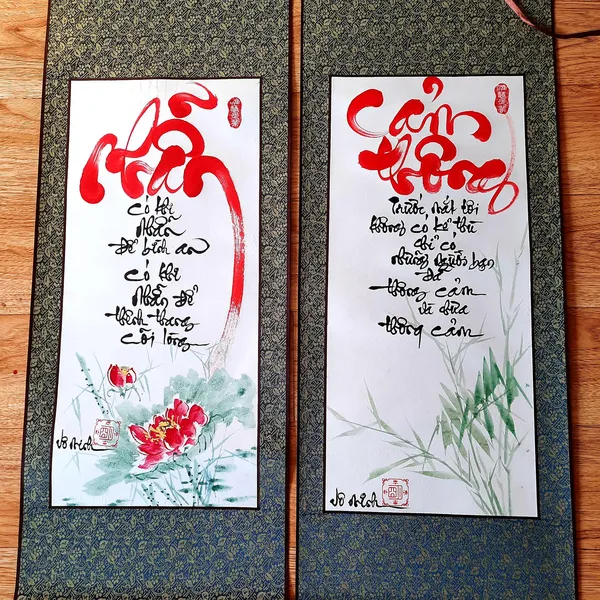 Nhẫn
Có khi
nhẫn
để bình an
Có khi
nhẫn để
thênh thang
cõi lòng
Cảm
thông
Trước mắt tôi
không có kẻ thù
chỉ có
những người bạn
để
thông cảm
và chưa
thông cảm